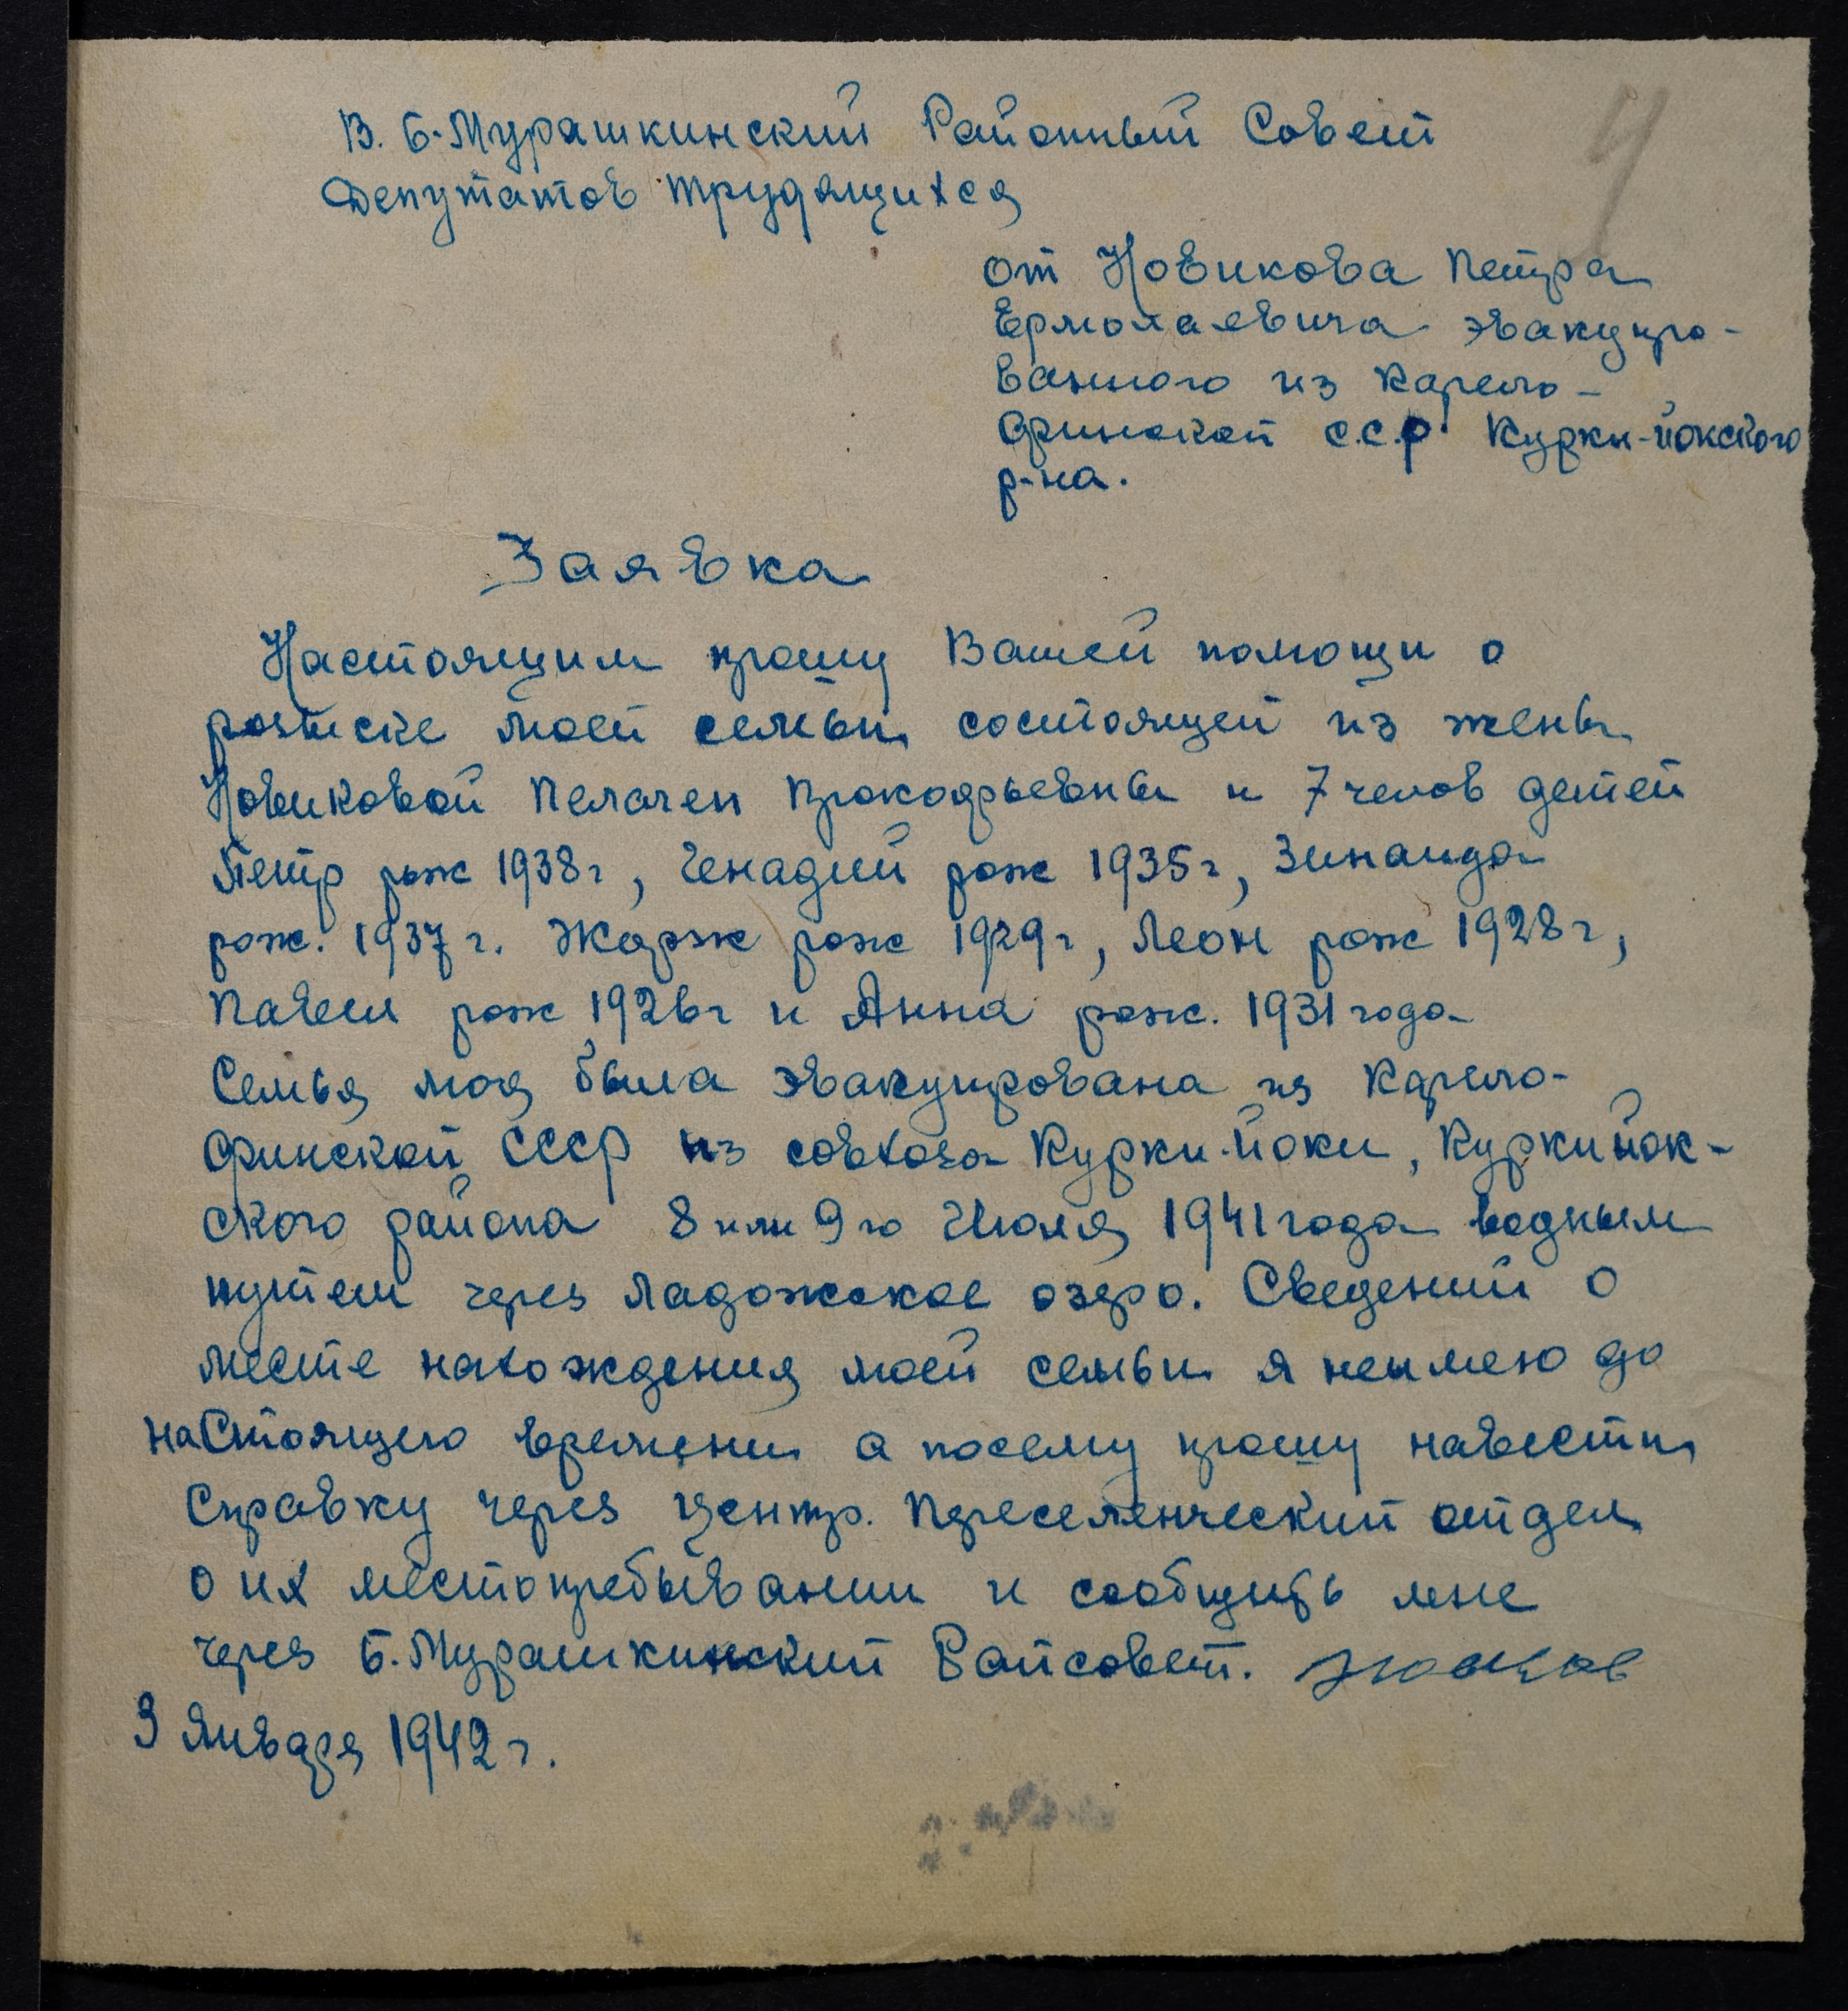 В. Б-Мурашкинский Районный Совет
Депутатов трудящихся
4
от Новикова Петра
Ермолаевича эвакуиро-
ванного из Карело-
Финской С.С.Р Курки-йокского
р-на.
Заявка
Настоящим прошу Вашей помощи о
розыске моей семьи состоящей из жены
Новиковой Пелагеи Прокофьевны и 7 челов детей
Петр рож 1938г, Генадий рож 1935г, Зинаида
рож. 1937г. Жорж рож 1929г, Леон рож 1928г,
Павел рож 1926г и Анна рож. 1931 года
Семья моя была эвакуирована из Карело-
Финской СССР из совхоза Курки-йоки, Куркийок-
ского района 8 или 9го Июля 1941 года водным
путем через Ладожское озеро. Сведений о
месте нахождения моей семьи я неимею до
настоящего времени а посему прошу навести
Справку через Центр. Переселенческий отдел
о их местопребывании и сообщить мне
через Б. Мурашкинский Райсовет.
3 Января 1942 г.